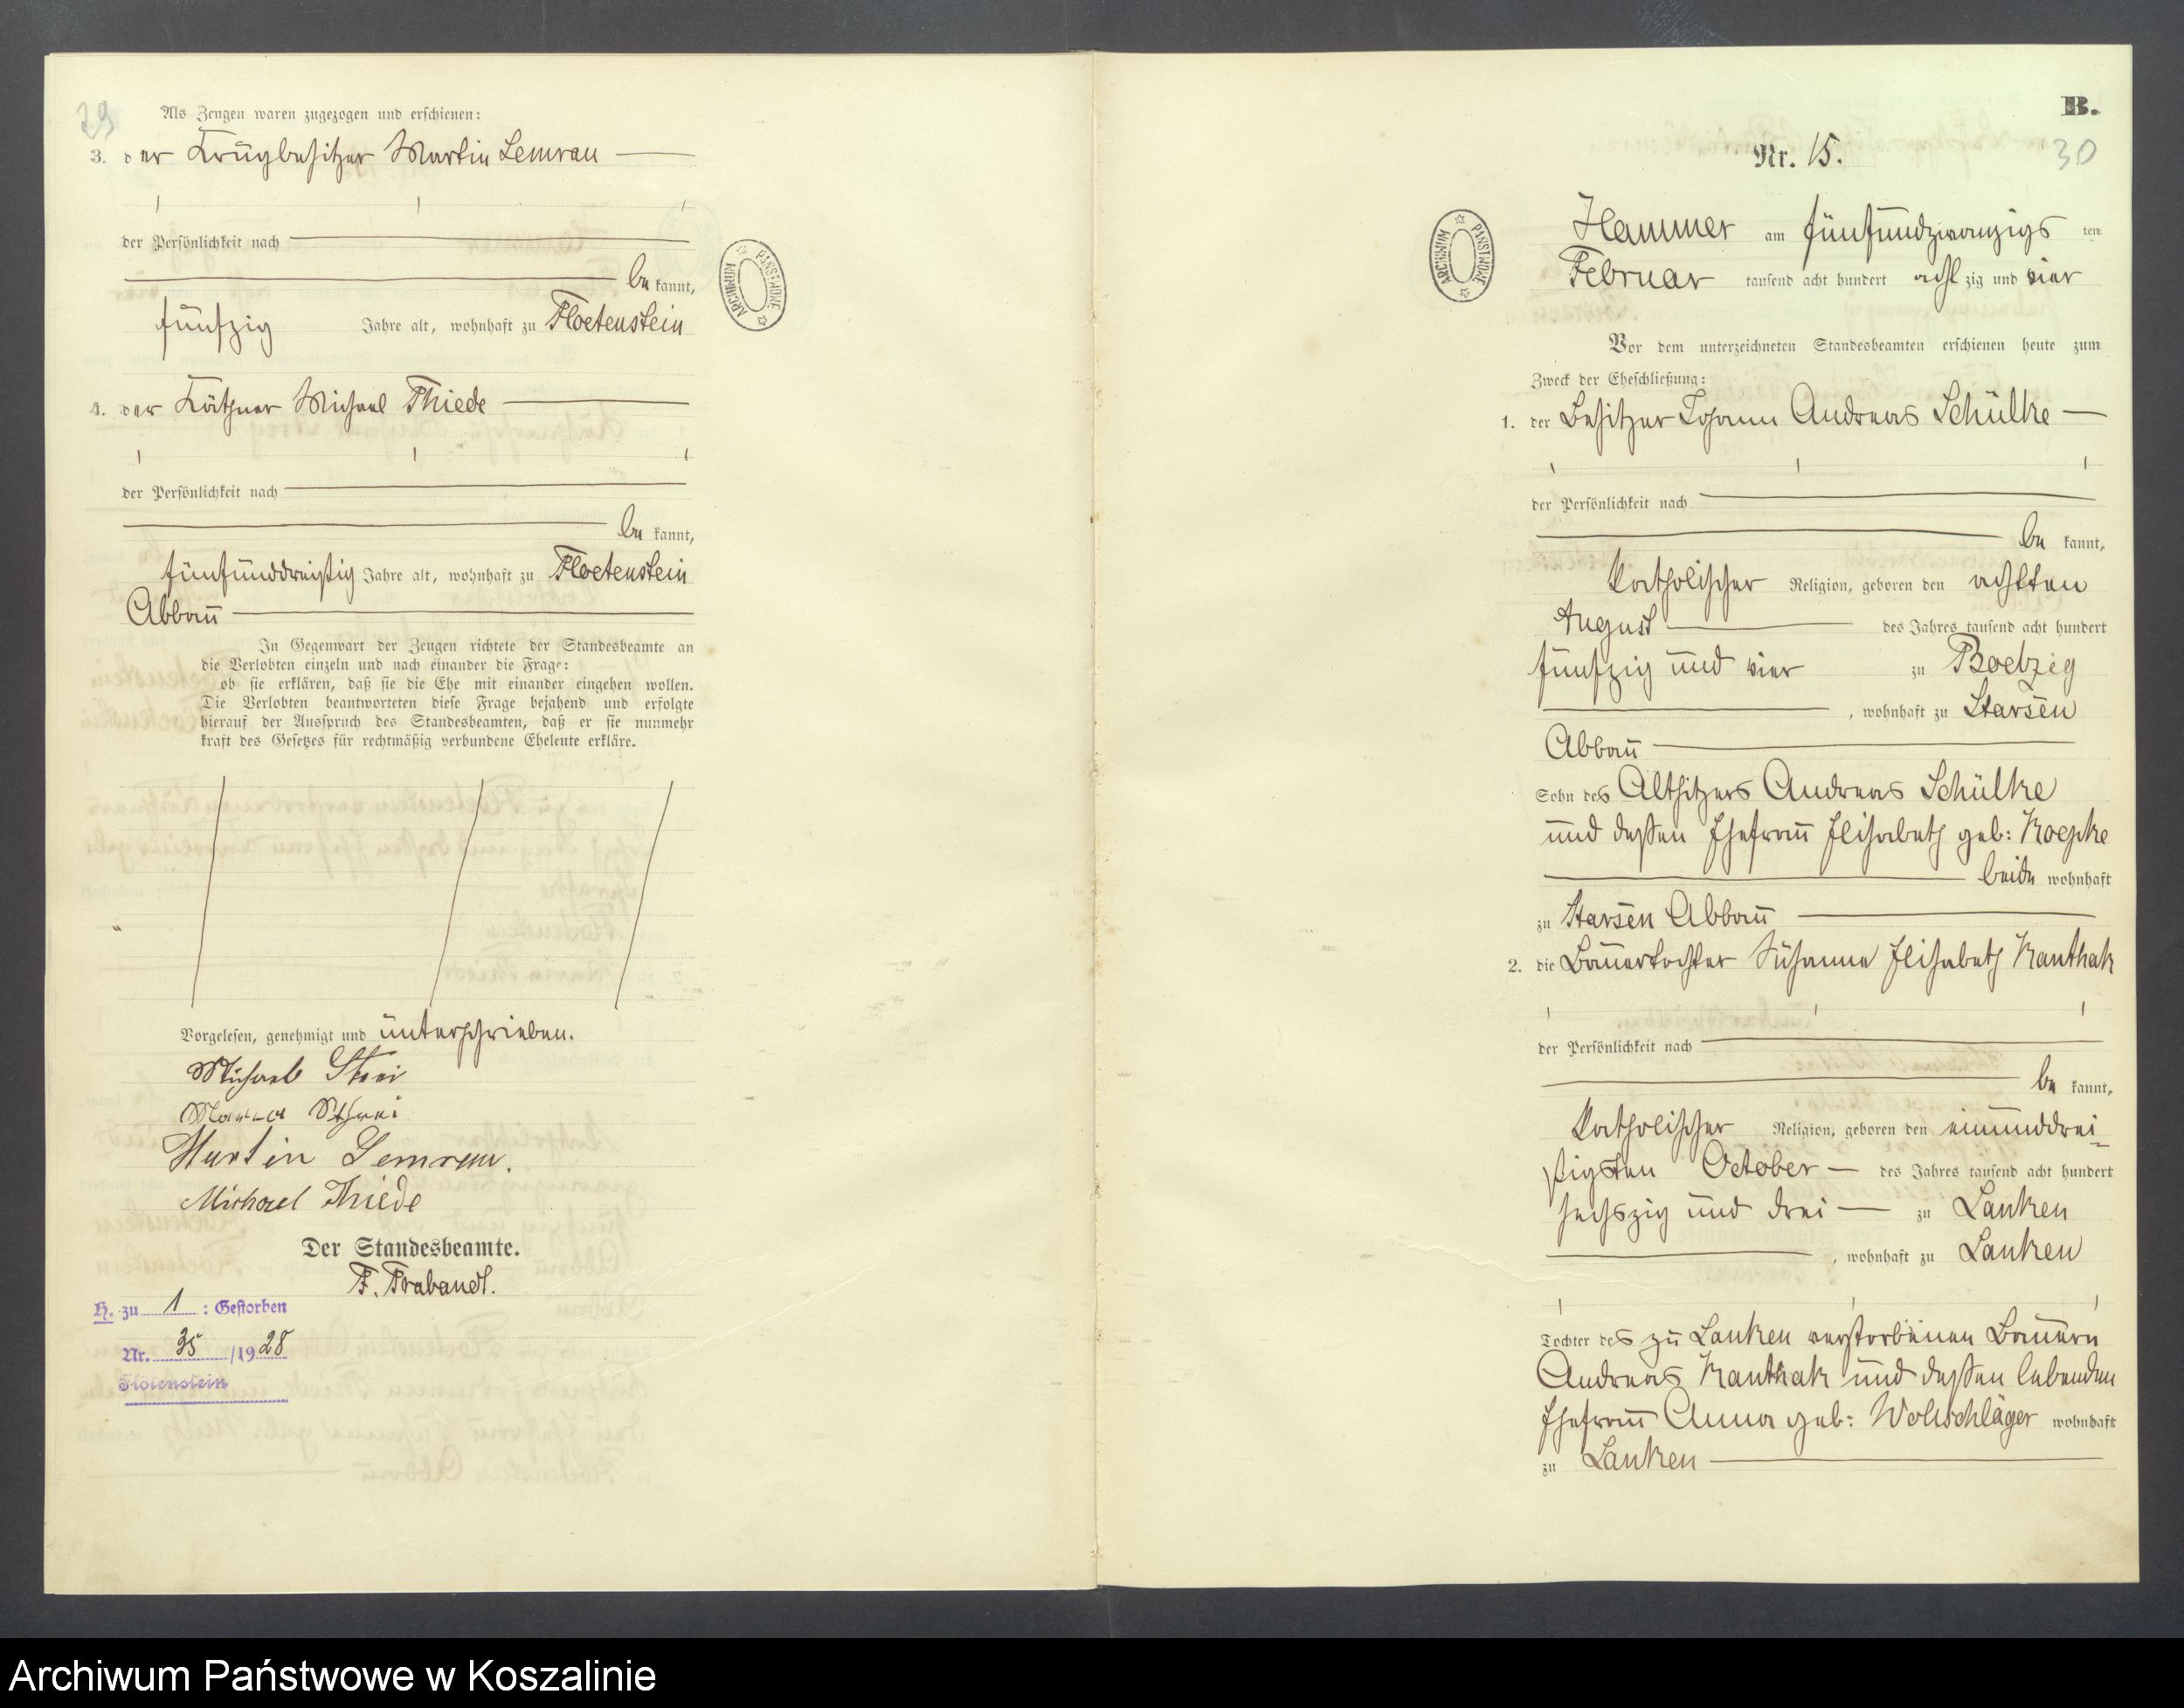 29
Als Zeugen waren zugezogen und erschienen:
3. der Krügbesitzer Martin Lemrau
der Persönlichkeit nach
be kannt,
fünfzig Jahre alt, wohnhaft zu Floetenstein
4. der Käthner Michael Thiede
der Persönlichkeit nach
be kannt,
fünfunddreißig Jahre alt, wohnhaft zu Floetenstein
Abbau
In Gegenwart der Zeugen richtete der Standesbeamte an
die Verlobten einzeln und nach einander die Frage:
ob sie erklären, daß sie die Ehe mit einander eingehen wollen.
Die Verlobten beantworteten diese Frage bejahend und erfolgte
hierauf der Ausspruch des Standesbeamten, daß er sie nunmehr
kraft des Gesetzes für rechtmäßig verbundene Eheleute erkläre.
Vorgelesen, genehmigt und unterschrieben.
Michael
Martin Lemrau.
Michael Thiede
Der Standesbeamte.
F. Trabandt.
H. zu 1 : Gestorben
Nr. 35 /1928
Flötenstein
ARCHIWUM PAŃSTWOWE
B.
30
Nr. 15.
ARCHIWUM PAŃSTWOWE
Hammer am fünfundzwanzigs ten
Februar tausend acht hundert acht zig und vier
Vor dem unterzeichneten Standesbeamten erschienen heute zum
Zweck der Eheschließung:
1. der Besitzer Johann Andreas Schülke
der Persönlichkeit nach
be kannt,
katholischer Religion, geboren den achtten
August des Jahres tausend acht hundert
fünfzig und vier zu Boetzig
, wohnhaft zu Starsen
Abbau
Sohn des Altsitzers Andreas Schülke
und deßen Ehefrau Elisabeth geb: Koepke
beide wohnhaft
zu Starsen Abbau
2. die Bauertochter Susanna Elisabeth Kanthak
der Persönlichkeit nach
be kannt,
katholischer Religion, geboren den einunddrei-
ßigsten October des Jahres tausend acht hundert
sechszig und drei zu Lanken
, wohnhaft zu Lanken
Tochter des zu Lanken verstorbenen Bauern
Andreas Kanthak und deßen lebenden
Ehefrau Anna geb: Wollschläger wohnhaft
zu Lanken
Archiwum Państwowe w Koszalinie